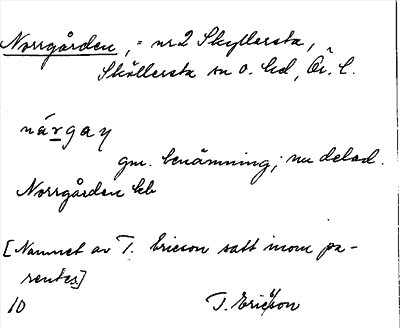 Norrgården, = nr 2 Skyllersta,
Sköllersta sn o. hd, Ör. l.
nárgaɳ
gm. benämning; nu delad.
Norrgården kb
[Namnet av T. Ericson satt inom pa-
rentes]
10 T. Ericson